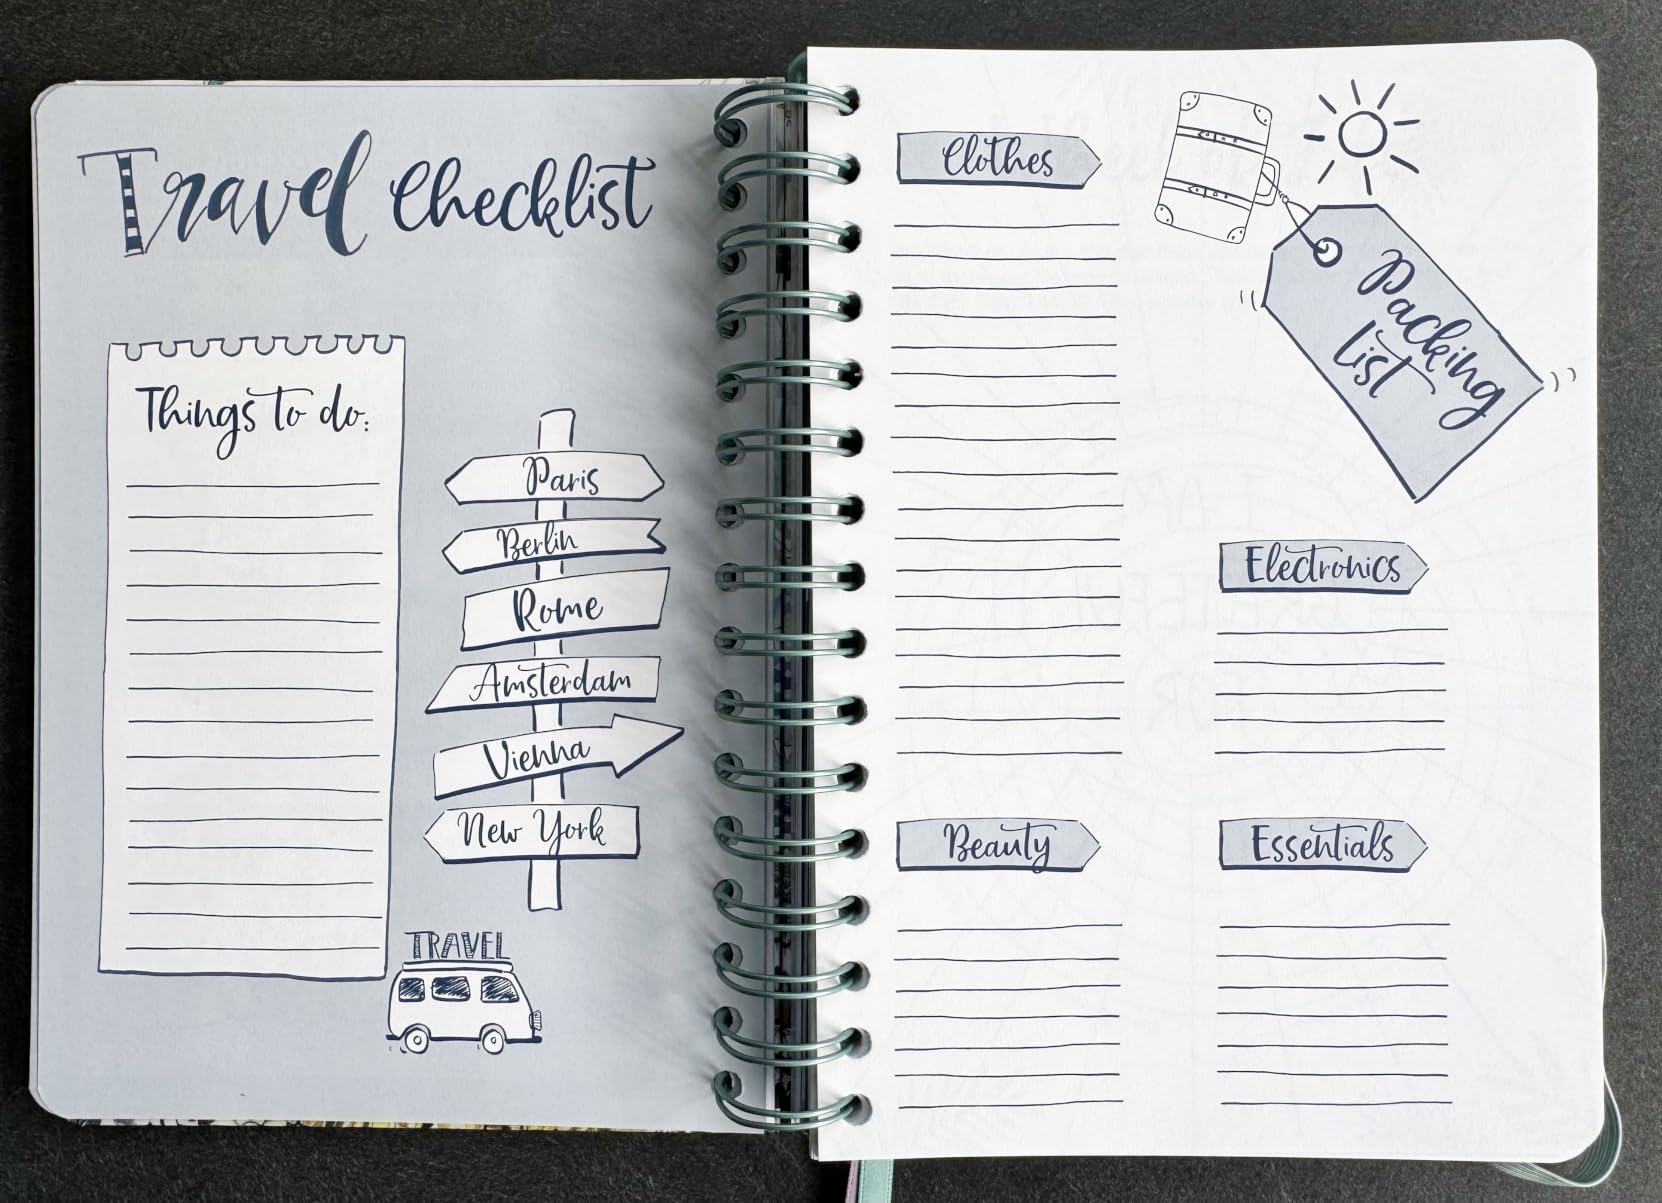 Travel Checklist
Things to do:
Paris
Berlin
Rome
Amsterdam
Vienna
New York
TRAVEL
Clothes
Packing
list
Electronics
Beauty
Essentials